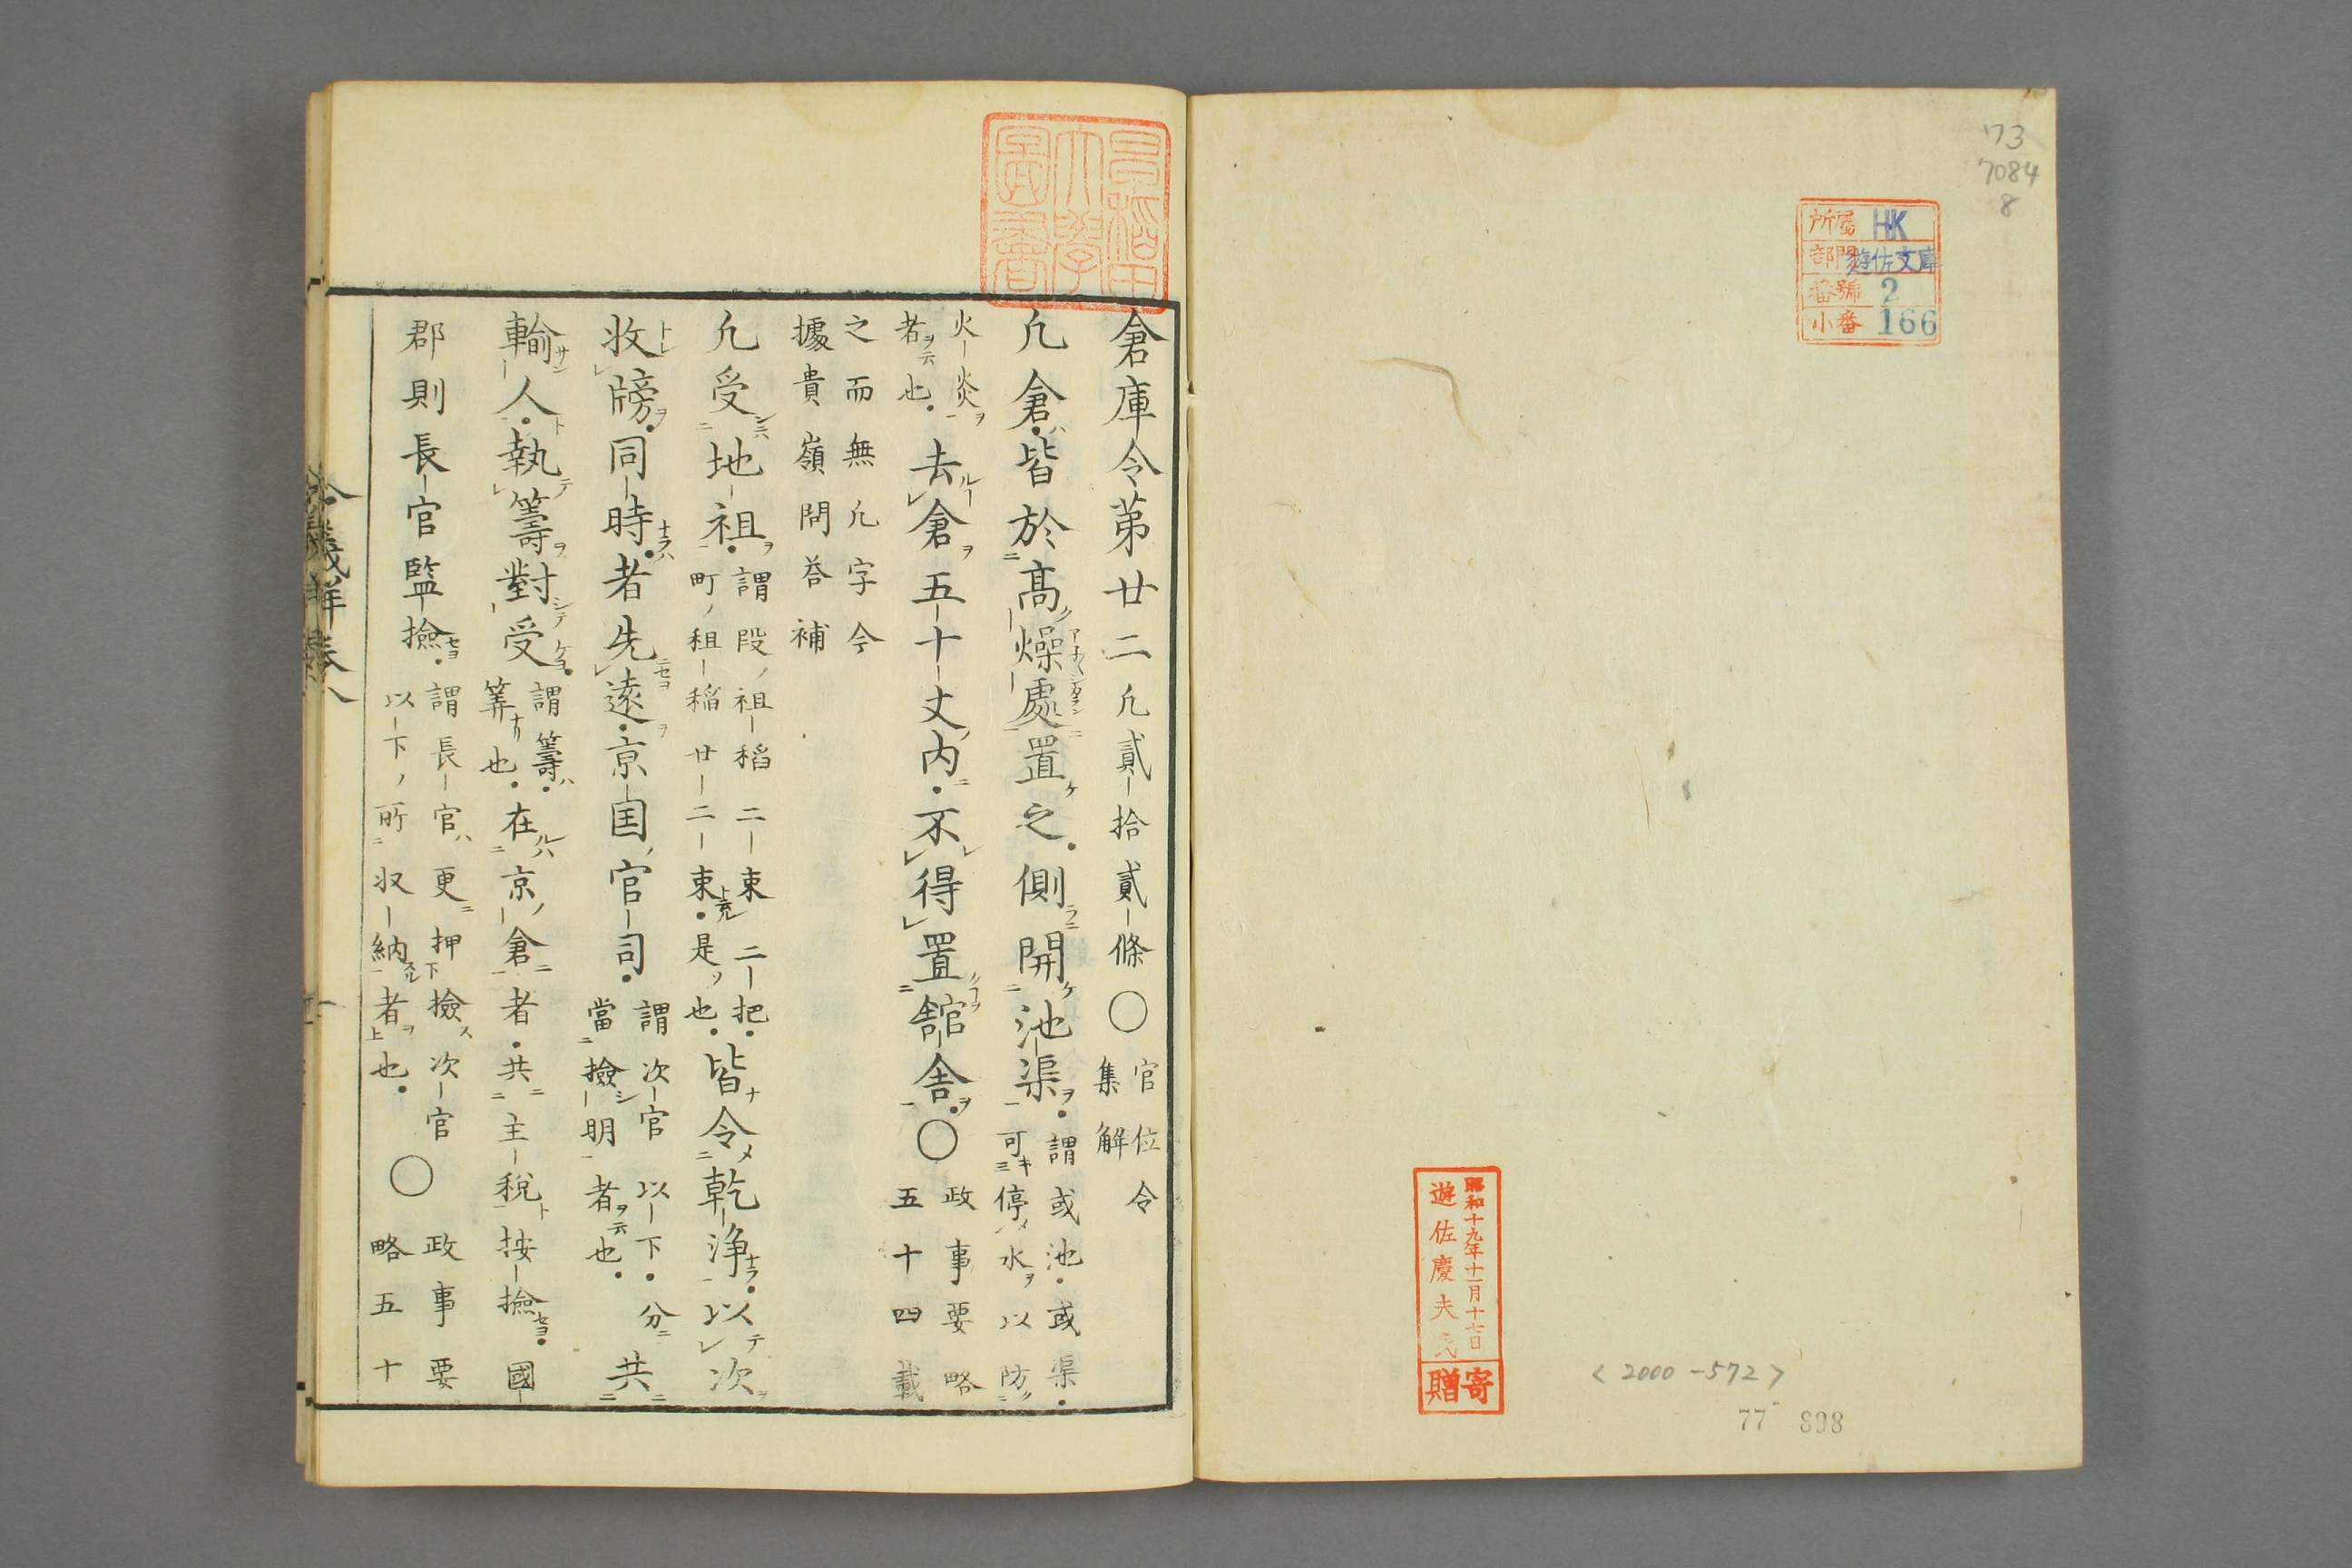 73
7084
8
所属 HK
部門 遊佐文庫
番號 2
小番 166
昭和十九年十一月十七日
遊佐慶夫氏
寄贈
<2000-572>
77 808
早稲田
大學
圖書
倉庫令第廿二 凢貳拾貳條〇 官位令
集解
凢倉皆於高燥處置之側開池渠 謂或池或渠
可停水以防
火炎
者也 去倉五十丈内不得置舘舎〇 政事要略
五十四載
之而無凢字今
據貴嶺問荅補
凢受地租 謂段租稲二束二把
町租稲廿二束是也 皆令乾浄以次
收牓同時者先遠京国官司 謂次官以下分
當撿明者也 共
輸人執籌對受 謂籌
筭也 在京倉者共主税按撿國
郡則長官監撿 謂長官更押撿次官
以下所収納者也 〇 政事要
略五十
令義解巻八